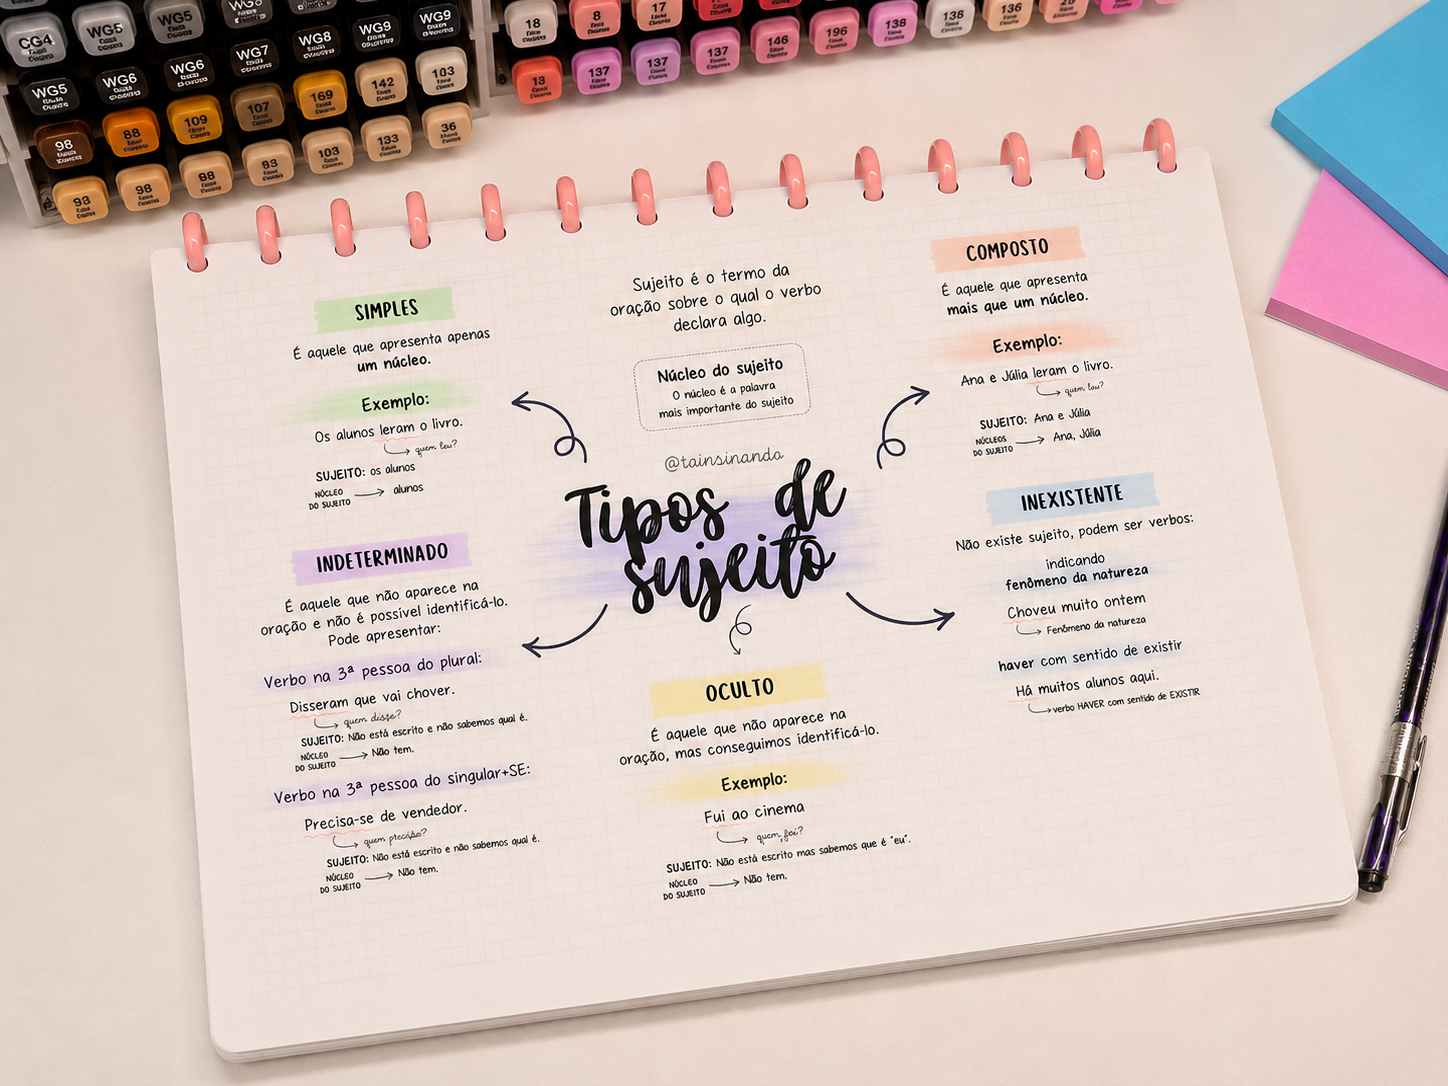 CG4
WG5
WG5
WG8
WG9
WG9
WG5
WG6
WG6
WG7
WG8
WG9
98
88
109
107
169
142
103
93
96
88
93
103
133
36
18
8
17
138
138
136
13
137
137
137
146
196
Sujeito é o termo da
oração sobre o qual o verbo
declara algo.
Núcleo do sujeito
O núcleo é a palavra
mais importante do sujeito
@tainsinanda
Tipos de
sujeito
SIMPLES
É aquele que apresenta apenas
um núcleo.
Exemplo:
Os alunos leram o livro.
quem leu?
SUJEITO: os alunos
NÚCLEO
DO SUJEITO
alunos
COMPOSTO
É aquele que apresenta
mais que um núcleo.
Exemplo:
Ana e Júlia leram o livro.
quem leu?
SUJEITO: Ana e Júlia
NÚCLEOS
DO SUJEITO
Ana, Júlia
INDETERMINADO
É aquele que não aparece na
oração e não é possível identificá-lo.
Pode apresentar:
Verbo na 3ª pessoa do plural:
Disseram que vai chover.
quem disse?
SUJEITO: Não está escrito e não sabemos qual é.
NÚCLEO
DO SUJEITO
Não tem.
Verbo na 3ª pessoa do singular+SE:
Precisa-se de vendedor.
quem precisa?
SUJEITO: Não está escrito e não sabemos qual é.
NÚCLEO
DO SUJEITO
Não tem.
OCULTO
É aquele que não aparece na
oração, mas conseguimos identificá-lo.
Exemplo:
Fui ao cinema
quem foi?
SUJEITO: Não está escrito mas sabemos que é "eu".
NÚCLEO
DO SUJEITO
Não tem.
INEXISTENTE
Não existe sujeito, podem ser verbos:
indicando
fenômeno da natureza
Choveu muito ontem
Fenômeno da natureza
haver com sentido de existir
Há muitos alunos aqui.
verbo HAVER com sentido de EXISTIR